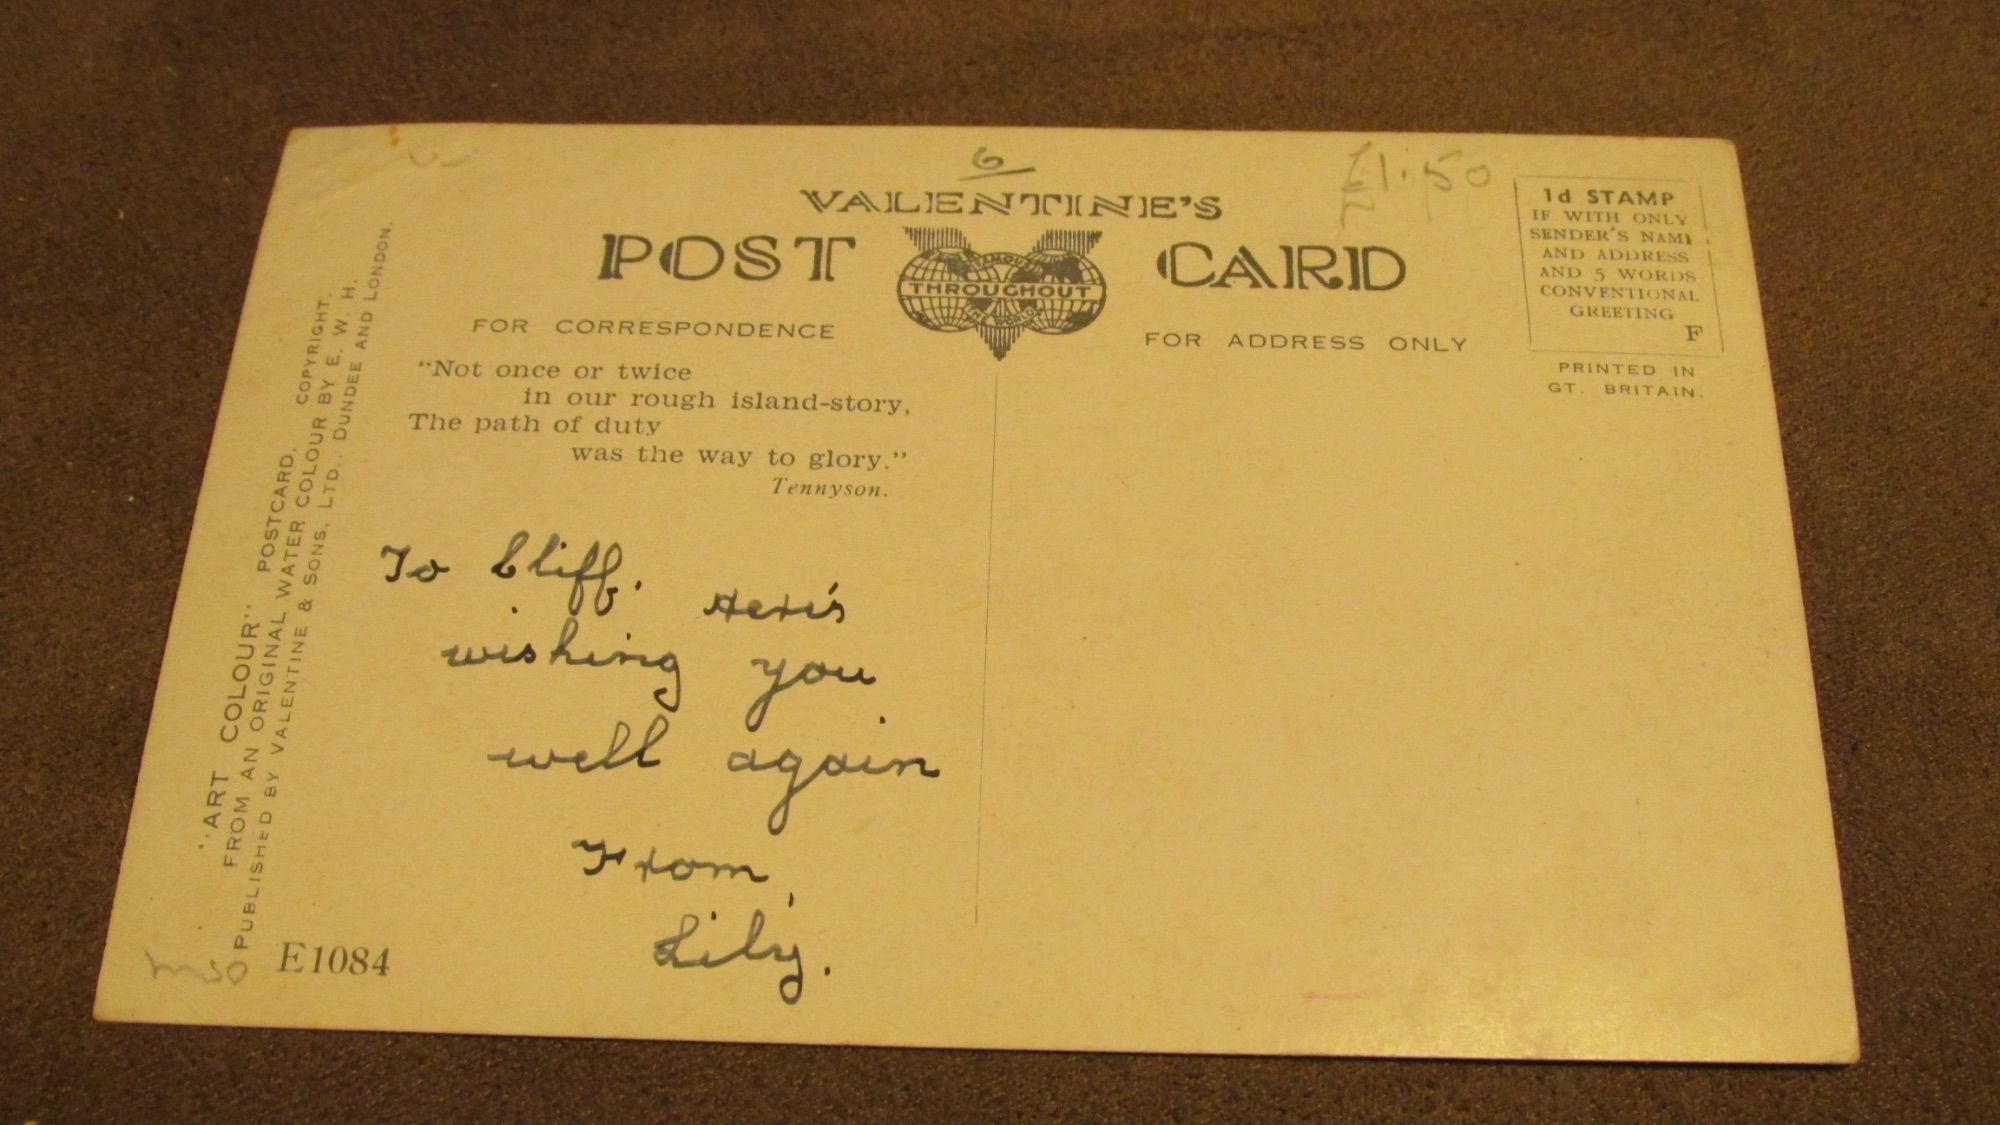 6
£1.50
VALENTINE'S
POST CARD
FAMOUS
THROUGHOUT
THE WORLD
FOR CORRESPONDENCE
FOR ADDRESS ONLY
1d STAMP
IF WITH ONLY
SENDER'S NAME
AND ADDRESS
AND 5 WORDS
CONVENTIONAL
GREETING
F
PRINTED IN
GT. BRITAIN.
"Not once or twice
in our rough island-story,
The path of duty
was the way to glory."
Tennyson.
To Cliff. Here's
wishing you
well again
From,
Lily.
"ART COLOUR" POSTCARD. COPYRIGHT.
FROM AN ORIGINAL WATER COLOUR BY E. W. H.
PUBLISHED BY VALENTINE & SONS, LTD., DUNDEE AND LONDON.
E1084